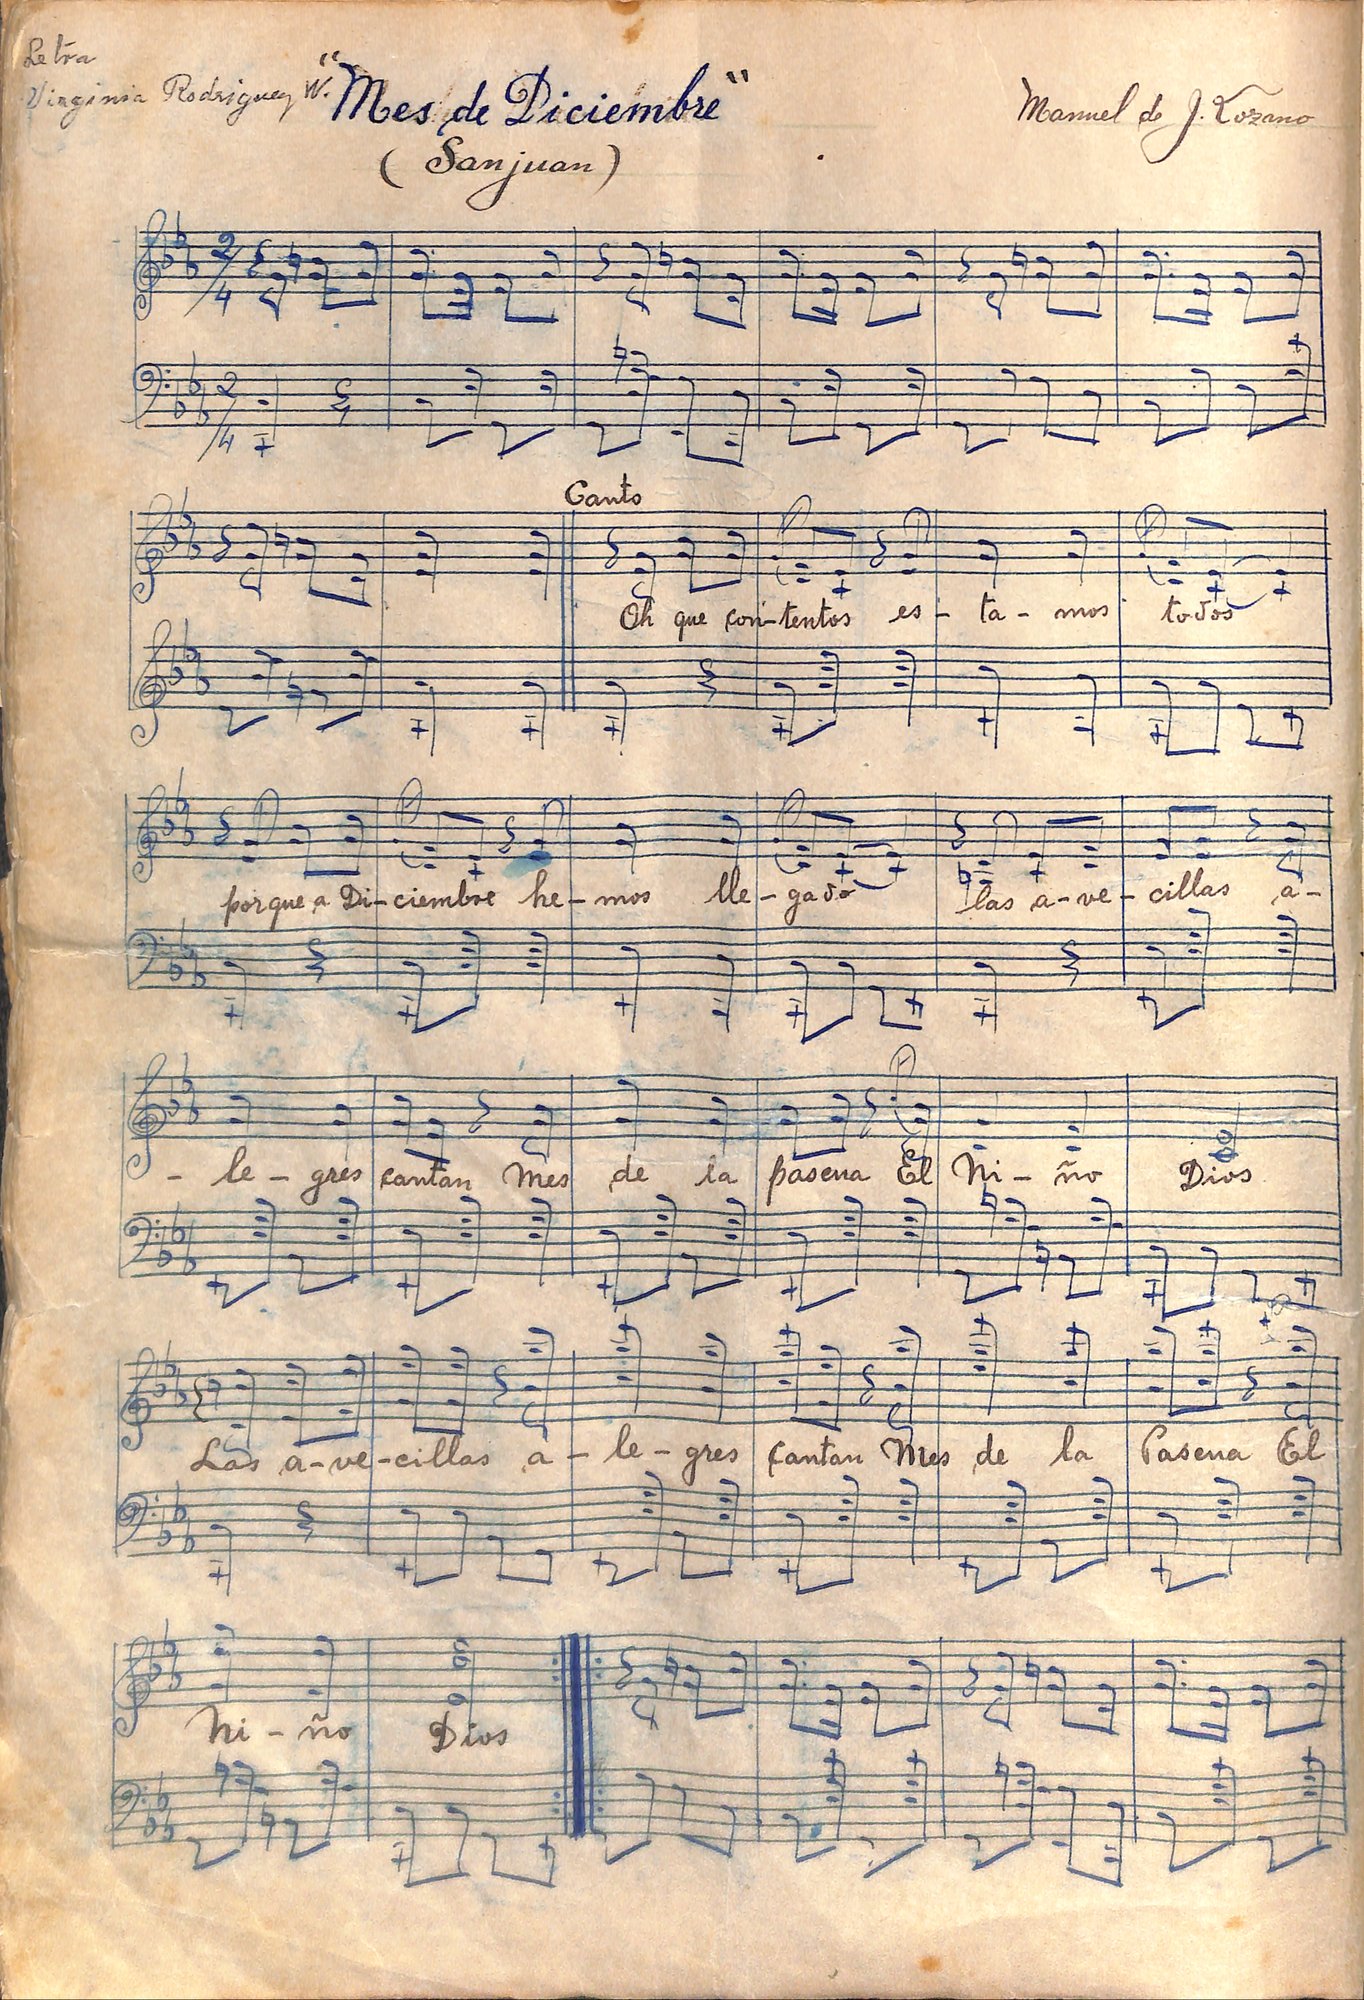 Letra
Virginia Rodriguez W.
"Mes de Diciembre"
Manuel de J. Lozano
(Sanjuan)
2/4
2/4
Canto
Oh que con-tentos es-ta-mos todos
porque a Di-ciembre he-mos lle-gado las a-ve-cillas a-
-le-gres cantan Mes de la pascua El Ni-ño Dios
Las a-ve-cillas a-le-gres cantan Mes de la Pascua El
Ni-ño Dios